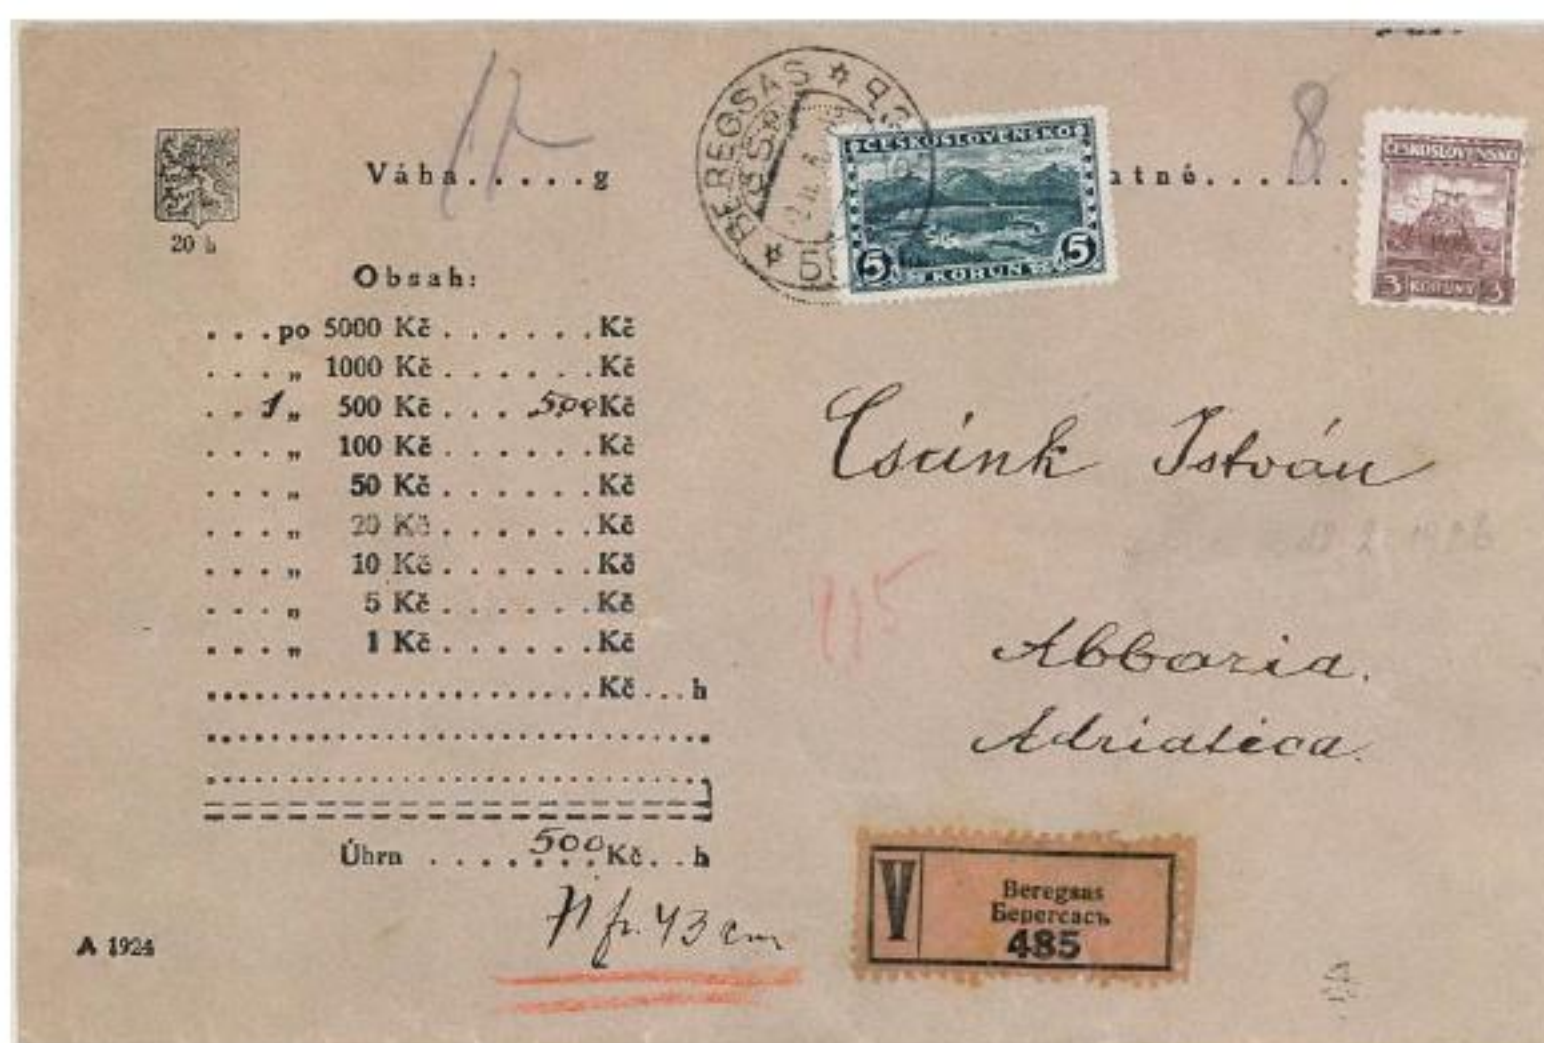 BEREGSAS
ČESKOSLOVENSKO
5 KORUN 5
ČESKOSLOVENSKO
3 KORUNY 3
20 h
Váha.....g
8
Obsah:
...po 5000 Kč.......Kč
...„ 1000 Kč.......Kč
..1„ 500 Kč...500Kč
...„ 100 Kč.......Kč
...„ 50 Kč.......Kč
...„ 20 Kč.......Kč
...„ 10 Kč.......Kč
...„ 5 Kč.......Kč
...„ 1 Kč.......Kč
Kč...h
Úhrn ....500Kč...h
71 fr. 43 cm
A 1924
Csánk István
Abbazia.
Adriatica.
V
Beregsas
Берегсасъ
485